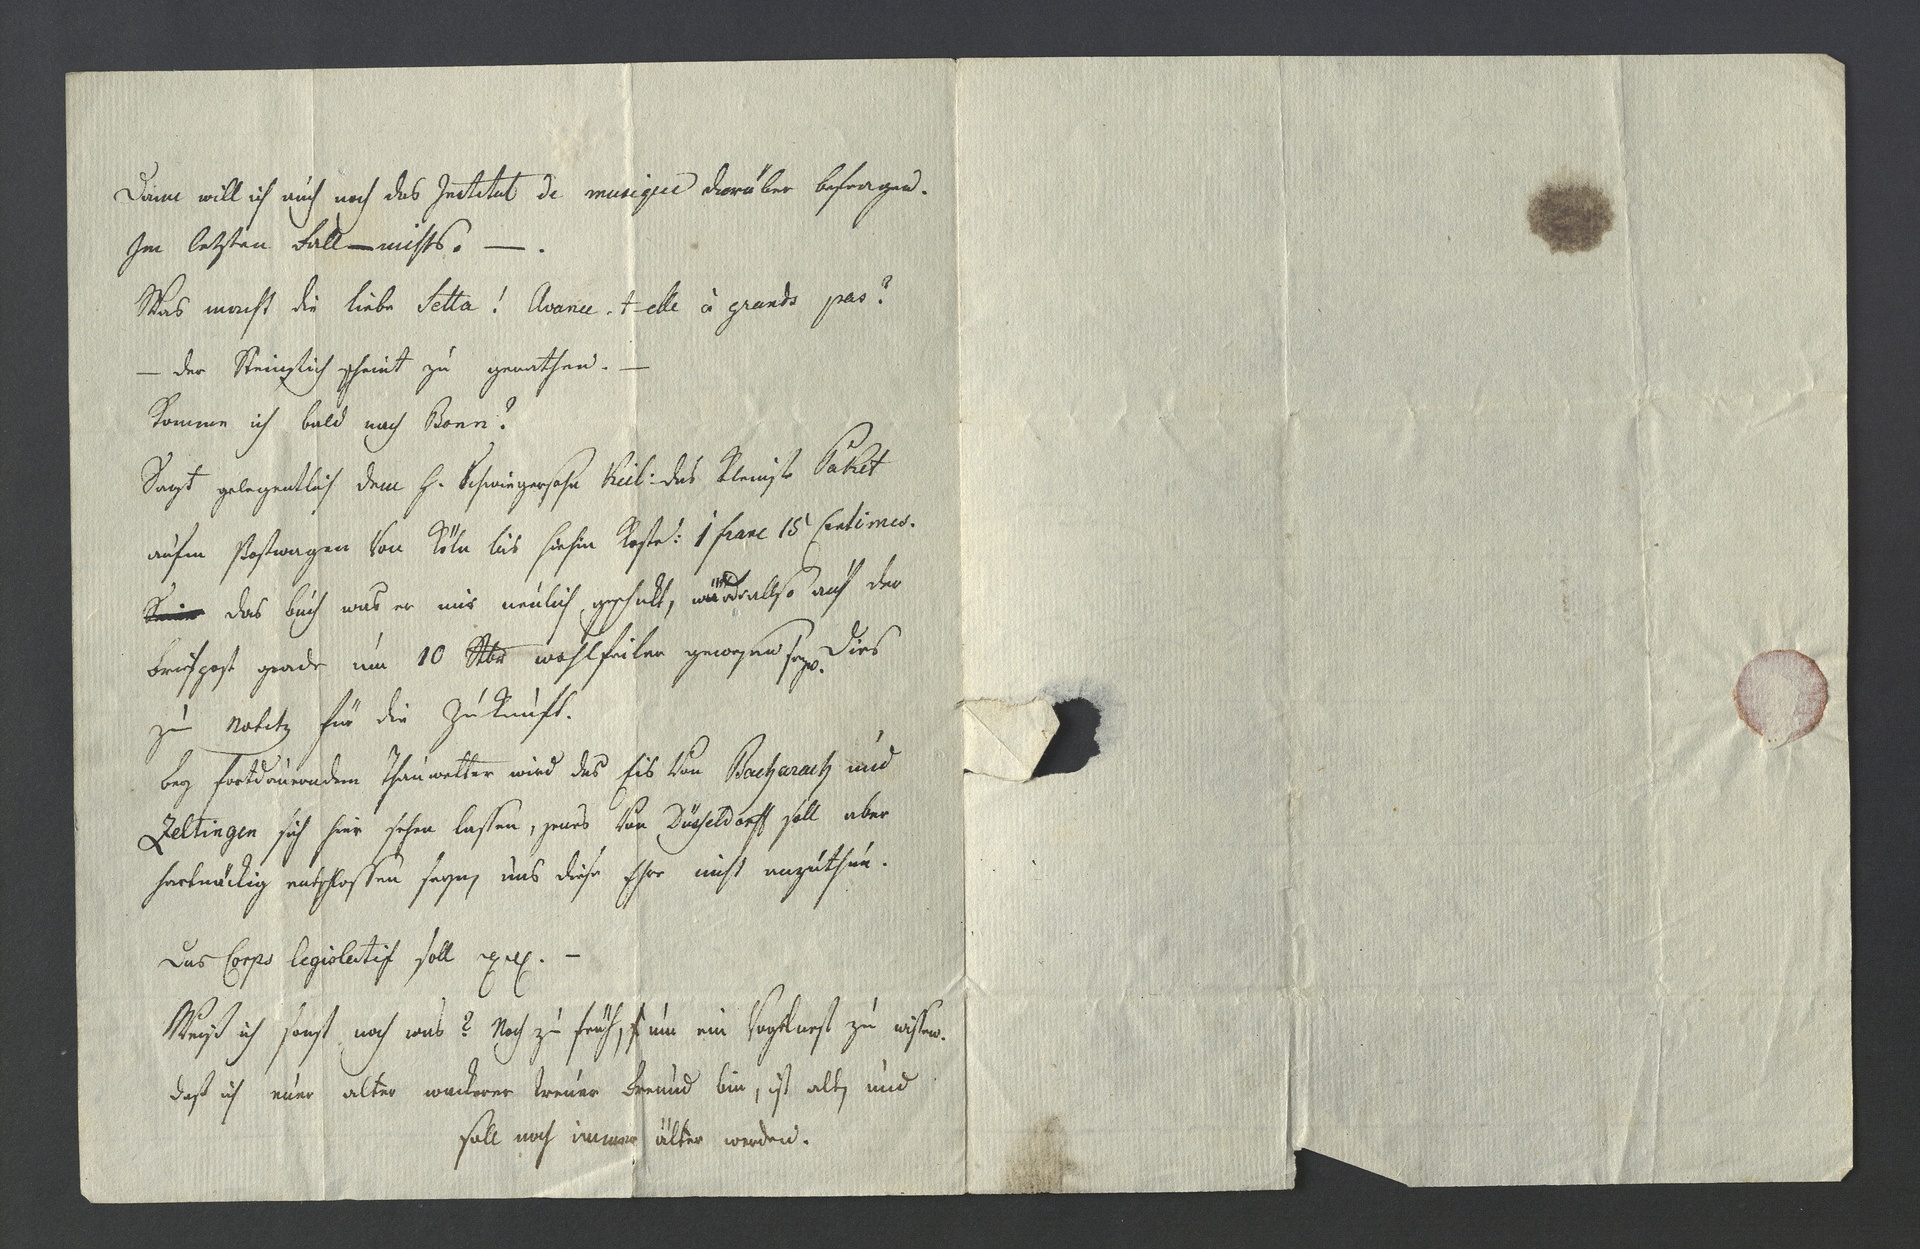 Dann will ich auch noch das Institut de musique darüber befragen.
Im letzten Fall — nichts. — .
Was macht die liebe Setta! Avance-t-elle à grands pas?
— der scheint zu gerathen. —
Komme ich bald nach Bonn?
Sagt gelegentlich dem H. Schwiegersohn Keil: das kleinste Paket
aufm Postwagen von Köln bis hiehin koste: 1 franc 15 Centimes.
das buch was er mir neulich geschikt, würde allso auf der
briefpost grade um 10 Stbr wohlfeiler gewesen seyn. Dies
zu Notitz für die Zukunft.
bey fortdauerendem Thauwetter wird das Eis von Bacharach und
Zeltingen sich hier sehen lassen, jenes von Düsseldorff soll aber
hartnäckig entschlossen seyn, uns diese Ehre nicht anzuthun.
Das Corps legislatif soll –
Weiß ich sonst noch was? Noch zu früh, um ein Vogelnest zu wissen.
daß ich euer alter wackerer treuer Freund bin, ist alt, und
soll noch immer älter werden.